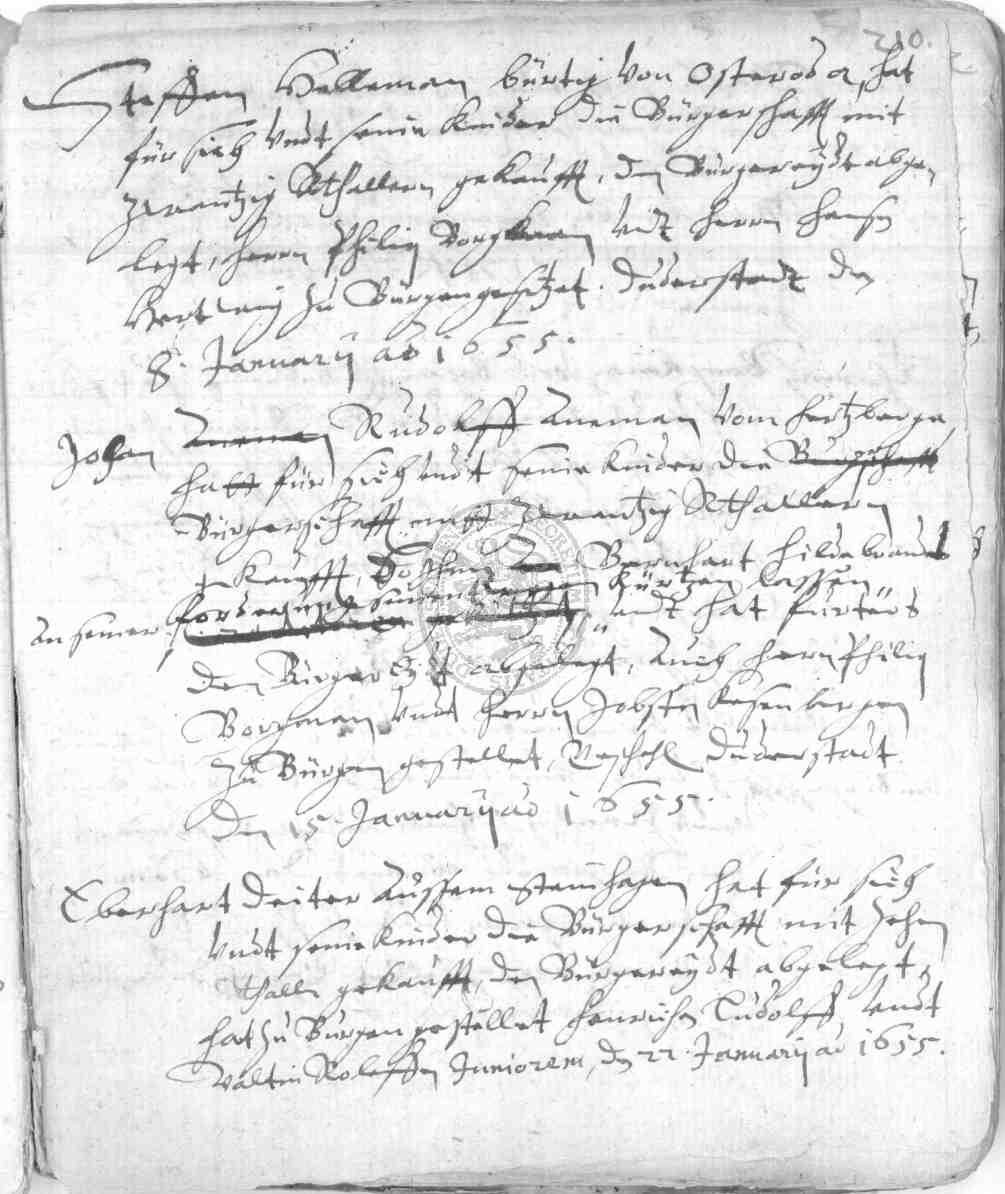 210.
Steffen Helleman bürtig von Osteroda, hat
für sich vndt seine kinder die Bürgerschafft mit
zwantzig Rthallern gekaufft, den Bürgereydt abge
legt, herrn Philip Borgman vndt herrn hansen
Hertwig zu Bürgen gesetzet. Duderstadt den
8. January ao 1655.
Johan Rudolff Aneman vom hertzberge,
hatt für sich vndt seine kinder die
Bürgerschafft mitt zwantzig Rthallern
gekaufft, So ihme Bernhart hildebrandt
an seiner forderung kürtzen lassen, vndt hat fürters
den Bürger Eydt abgelegt, Auch herrn Philip
Borgman vndt herrn Jobsten kesenbergen
zu Bürgen gestellet, Duderstadt
den 15 January ao 1655.
Eberhart Deiter Aussem Steinhagen hat für sich
vndt seine kinder die Bürgerschafft mit zehen
thalln gekaufft, den Bürgereydt abgelegt,
hat zu Bürgen gestellet henrichen Ludolff vndt
Valtin Roleffen Juniorem, den 22 January ao 1655.